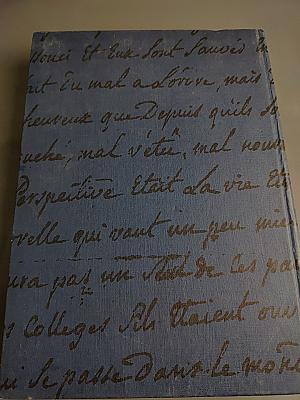 Et Eux Sont Sauvés
fait Du mal a Lorire, mais
heureux que Depuis qu'ils so
uché, mal vétu, mal nour
Perspective Etait La vie Et
velle qui vaut un peu mie
ura pas un Seul de Ces pa
s Colleges Ils Etaient ouv
ui Se passe Dans Le mon